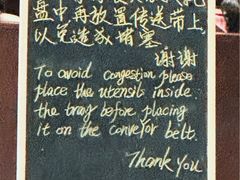 盘中再放置传送带上,
以免造成堵塞
谢谢
To avoid congestion please
place the utensils inside
the tray before placing
it on the conveyor belt.
Thank you